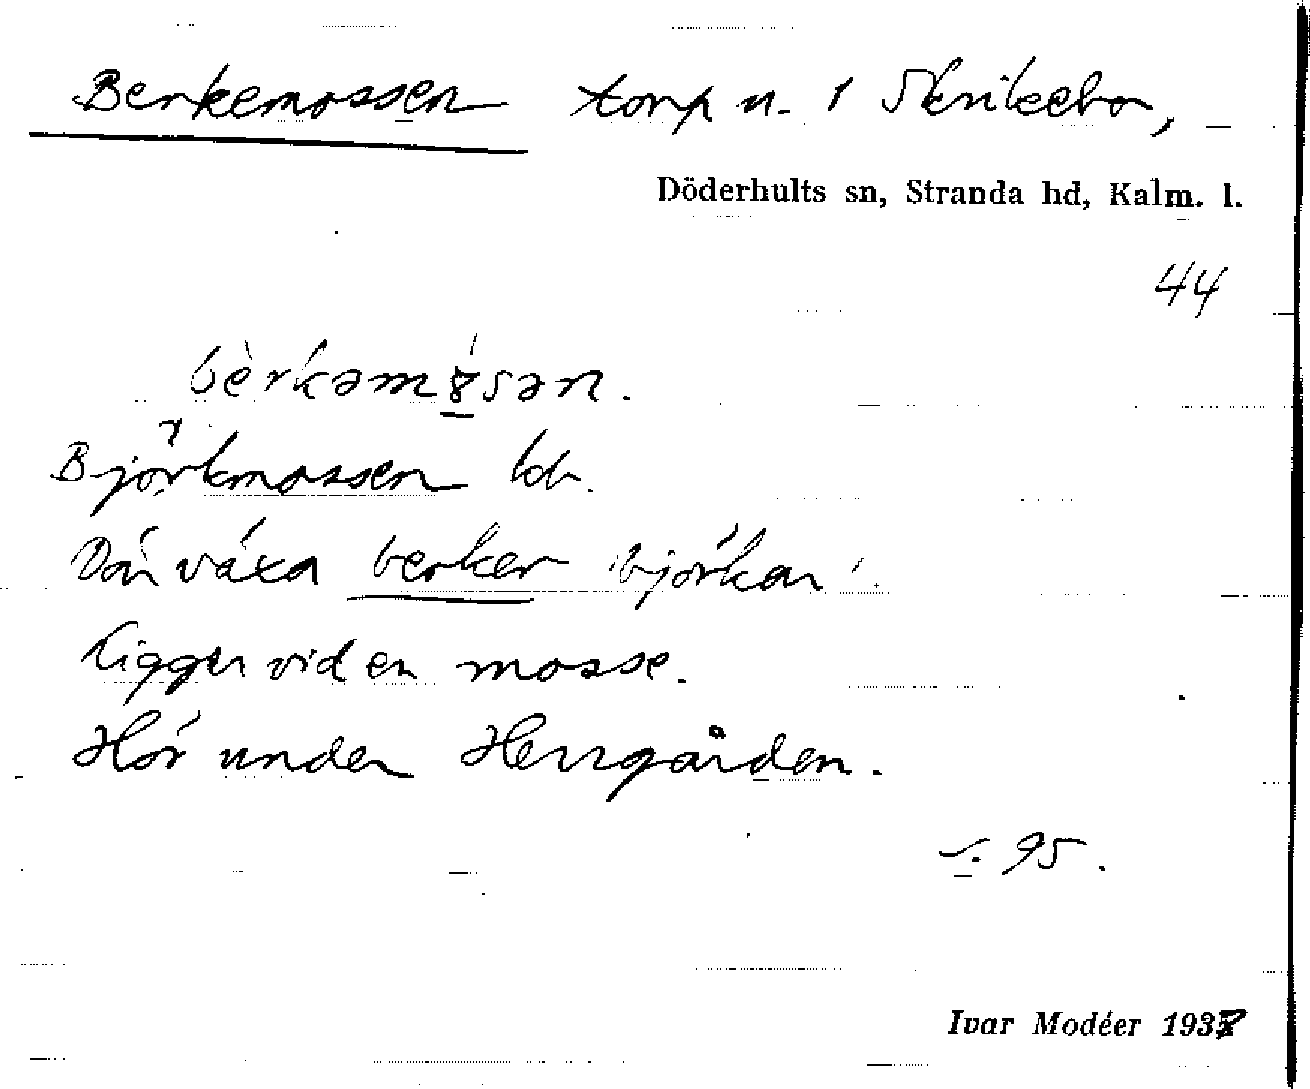 Berkemossen torp u. 1 Skrikebo,
Döderhults sn, Stranda hd, Kalm. l.
44
bèrkəmɤ́sən.
Björkmossen kb.
Där växa berker 'björkar'.
Ligger vid en mosse.
Hör under Herrgården.
s. 95.
Ivar Modéer 1937